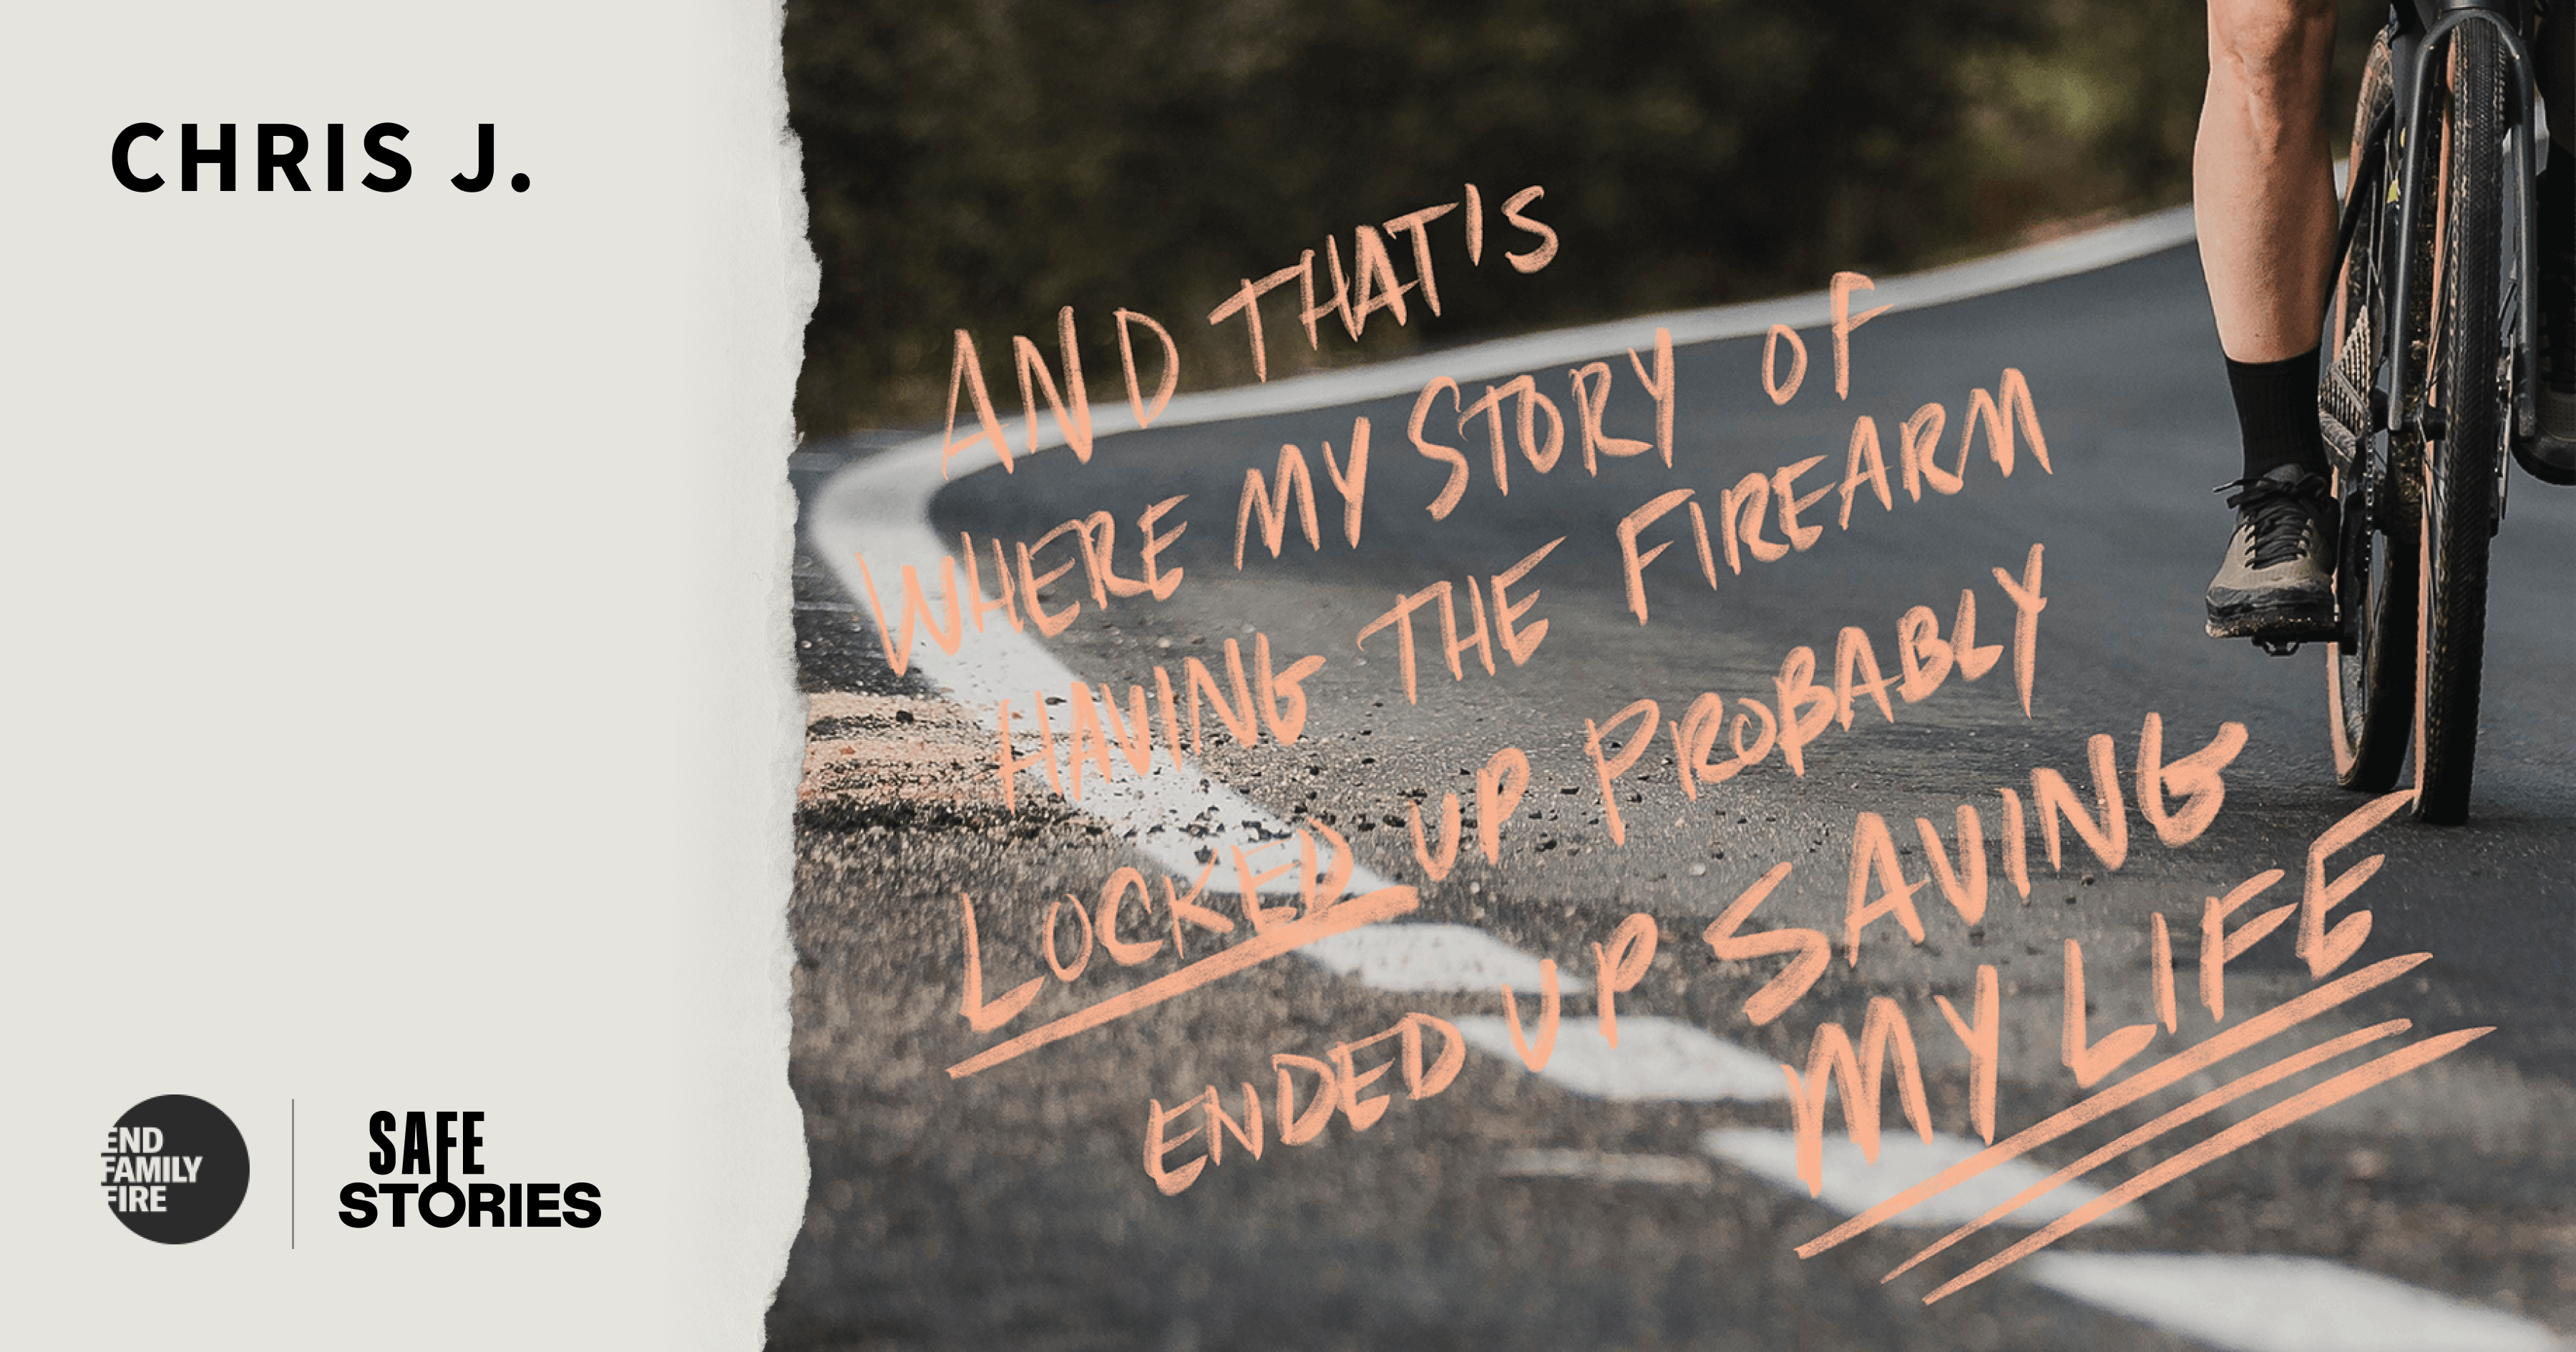 CHRIS J.
AND THAT'S
WHERE MY STORY OF
HAVING THE FIREARM
LOCKED UP PROBABLY
ENDED UP SAVING
MY LIFE
END
FAMILY
FIRE
SAFE
STORIES